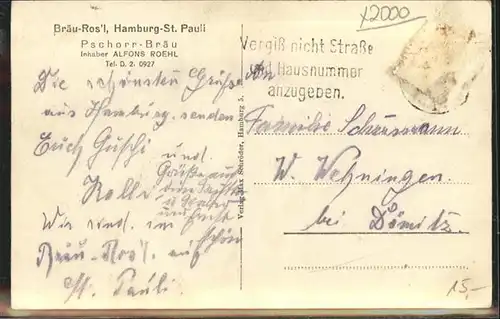 Bräu-Ros'l, Hamburg-St. Pauli
Pschorr-Bräu
Inhaber ALFONS ROEHL
Tel. D. 2. 0927
x2000
Vergiß nicht Straße
und Hausnummer
anzugeben.
Die schönsten Grüße
aus Hamburg senden
Euch Guschi
und
Kalle
Grüße auch
Wir sind im
Bräu-Ros'l auf
St. Pauli.
schön
Verlag Max Schröder, Hamburg 3.
An
Familie Scheuermann
W. Wehningen.
bei Dömitz.
15,-